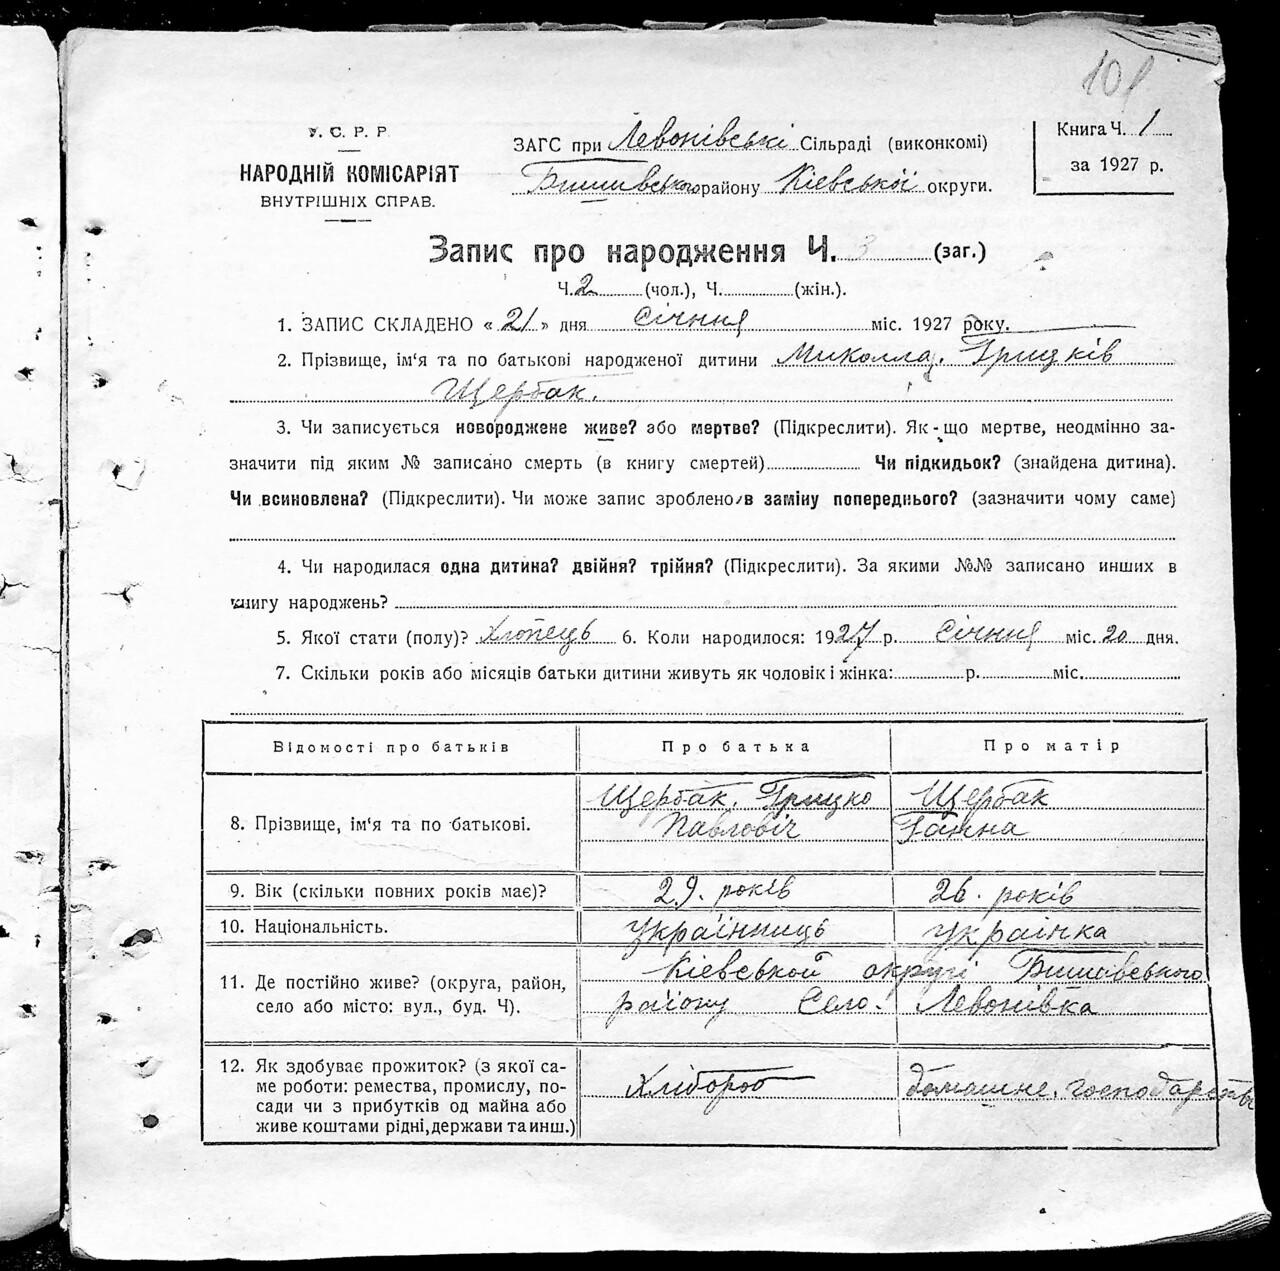 101
У. С. Р. Р.
НАРОДНІЙ КОМІСАРІЯТ
ВНУТРІШНІХ СПРАВ.
ЗАГС при Левонівські Сільраді (виконкомі)
Бишивського району Кієвської округи.
Книга Ч. 1
за 1927 р.
Запис про народження Ч. 3 (заг.)
Ч. 2 (чол.), Ч. (жін.).
1. ЗАПИС СКЛАДЕНО « 21 » дня Січння міс. 1927 року.
2. Прізвище, ім'я та по батькові народженої дитини Миколла. Грицків
Щербак.
3. Чи записується новороджене живе? або мертве? (Підкреслити). Як-що мертве, неодмінно за-
значити під яким № записано смерть (в книгу смертей) Чи підкидьок? (знайдена дитина).
Чи всиновлена? (Підкреслити). Чи може запис зроблено в заміну попереднього? (зазначити чому саме)
4. Чи народилася одна дитина? двійня? трійня? (Підкреслити). За якими №№ записано инших в
книгу народжень?
5. Якої стати (полу)? Хлопець 6. Коли народилося: 1927 р. Січння міс. 20 дня.
7. Скільки років або місяців батьки дитини живуть як чоловік і жінка: р. міс.
Відомості про батьків Про батька Про матір
8. Прізвище, ім'я та по батькові. Щербак. Грицко Щербак
Павловіч Ганна
9. Вік (скільки повних років має)? 29. років 26. років
10. Національність. українниць украінка
11. Де постійно живе? (округа, район, Кіевськой округі Бишивського
село або місто: вул., буд. Ч). району Село. Левонівка
12. Як здобуває прожиток? (з якої са-
ме роботи: ремества, промислу, по- Хлібороб домашне. господарство
сади чи з прибутків од майна або
живе коштами рідні, держави та инш.)